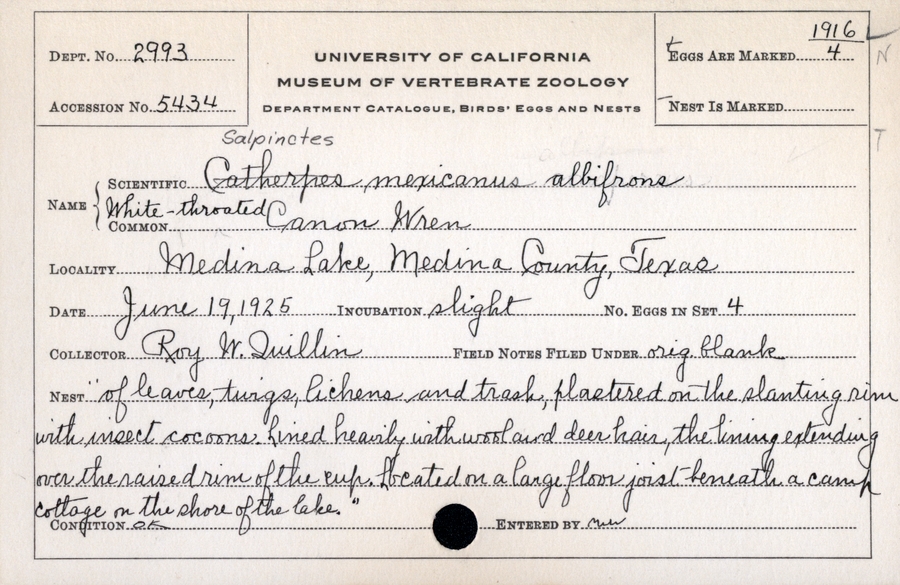 DEPT. NO. 2993
ACCESSION NO. 5434
UNIVERSITY OF CALIFORNIA
MUSEUM OF VERTEBRATE ZOOLOGY
DEPARTMENT CATALOGUE, BIRDS' EGGS AND NESTS
EGGS ARE MARKED 1916/4
NEST IS MARKED
N
T
Salpinctes
NAME
SCIENTIFIC Catherpes mexicanus albifrons
COMMON White-throated Canon Wren
LOCALITY Medina Lake, Medina County, Texas
DATE June 19, 1925 INCUBATION slight NO. EGGS IN SET 4
COLLECTOR Roy W. Quillin FIELD NOTES FILED UNDER orig. blank
NEST "of leaves, twigs, lichens and trash, plastered on the slanting rim
with insect cocoons. Lined heavily with wool and deer hair, the lining extending
over the raised rim of the cup. Located on a large floor joist beneath a camp
cottage on the shore of the lake."
CONDITION OK ENTERED BY